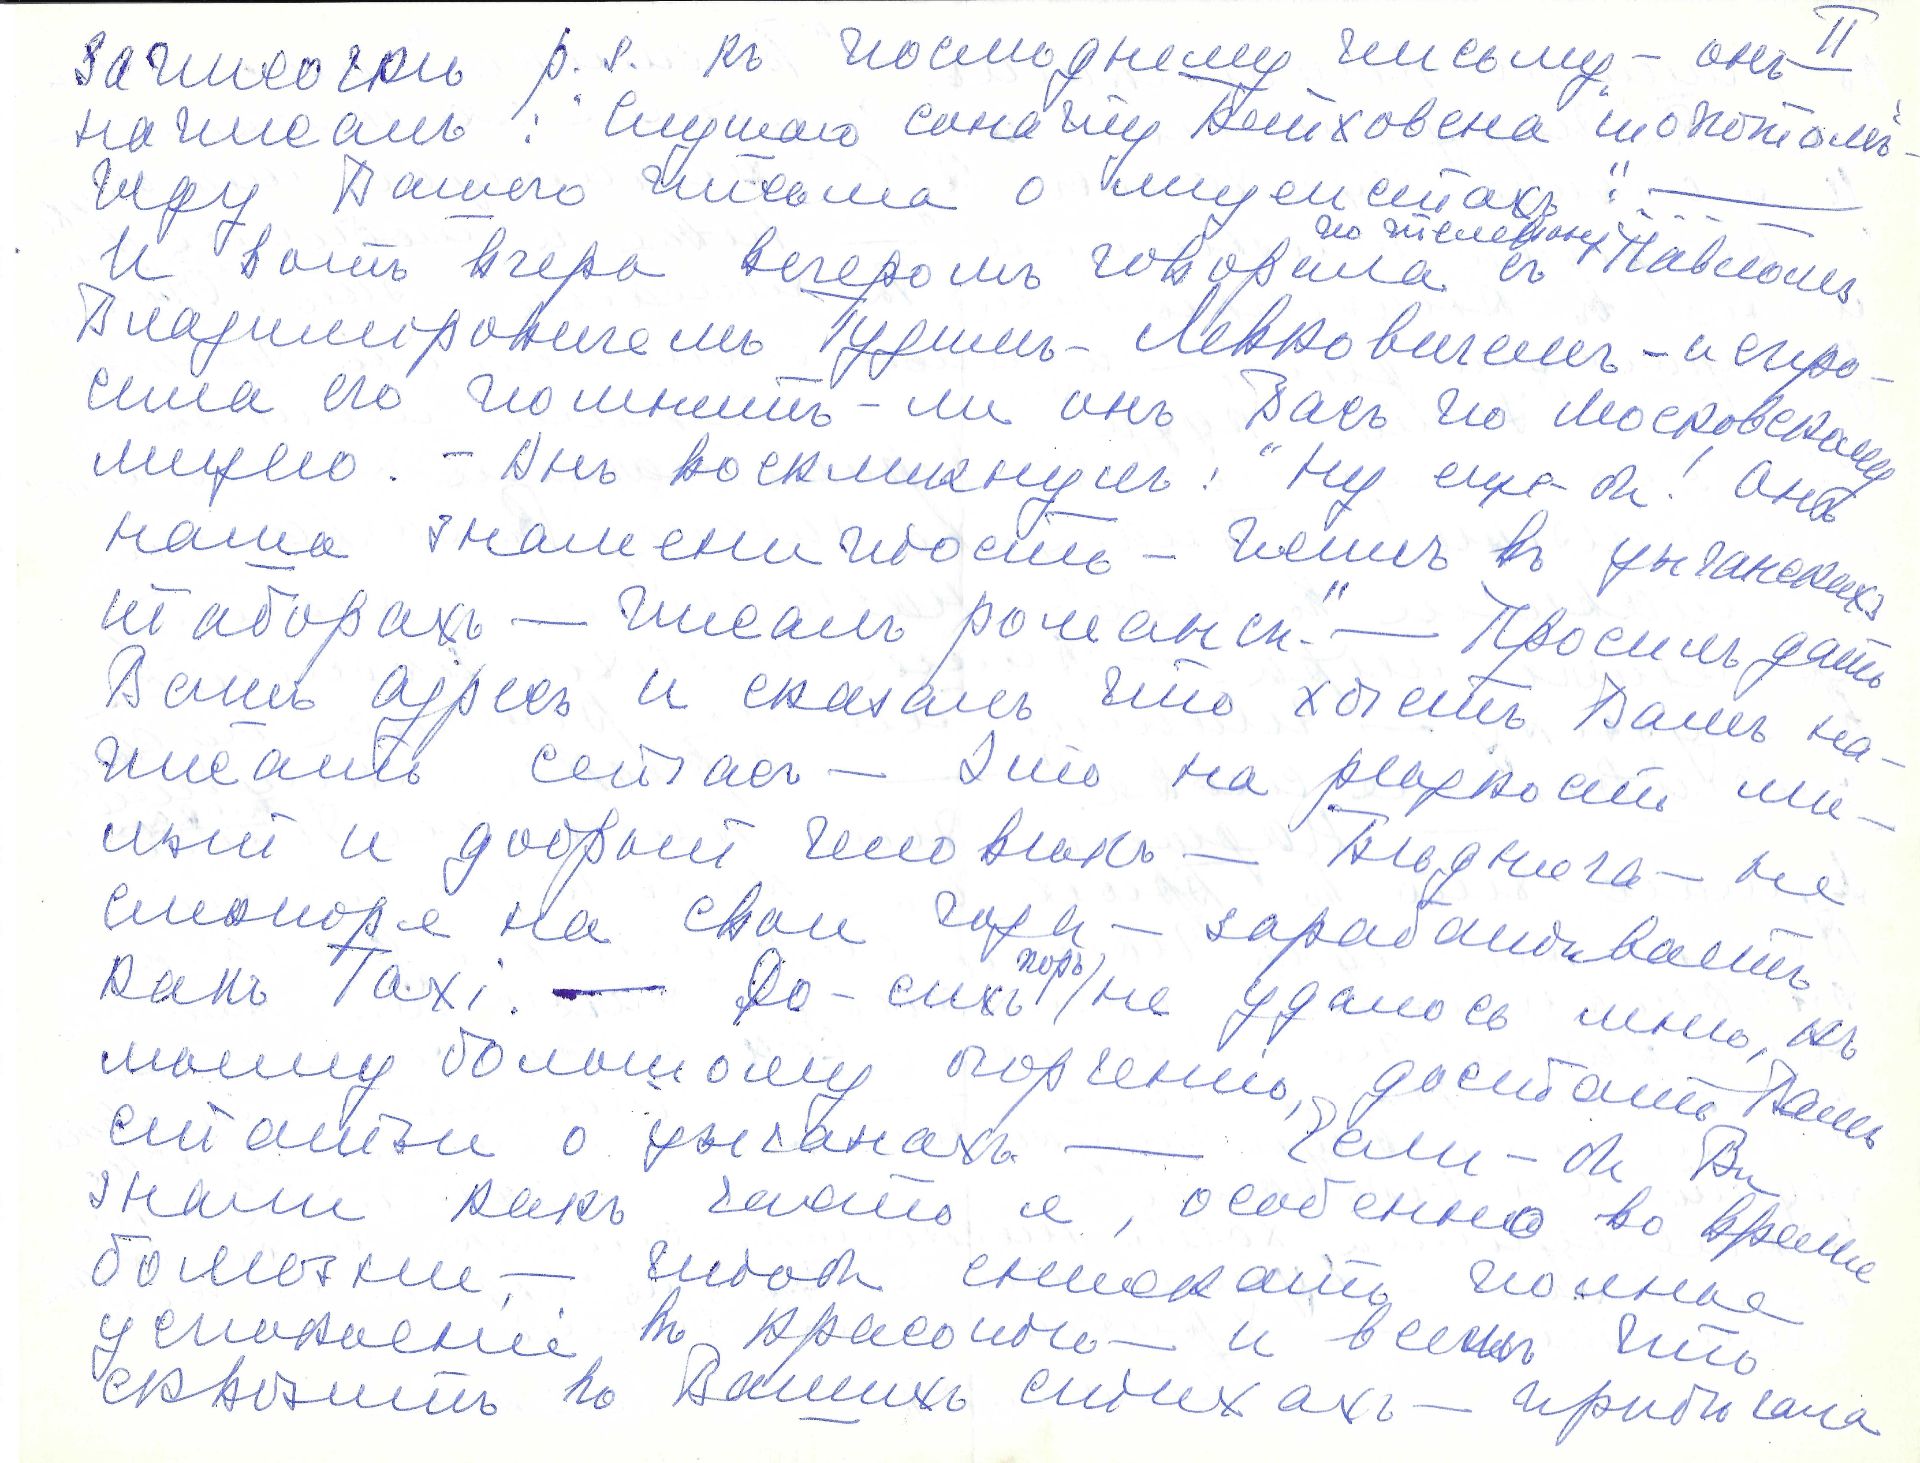 II
записочки p.s. къ последнему письму – онъ
написалъ: "Слушаю сонату Бетховена "потомъ –
жду Вашего письма о лицеистахъ". —
И вотъ вчера вечеромъ говорила съ по телефону Павломъ
Владимировичемъ Гудимъ-Левковичемъ – и спро-
сила его помнитъ-ли онъ Васъ по Московскому
лицею. – Онъ воскликнулъ: "Ну еще-бы! Онъ
наша знаменитость – пелъ въ цыганскихъ
таборахъ — писалъ романсы." — Просилъ дать
Вашъ адресъ и сказалъ что хочетъ Вамъ на-
писать сейчасъ — Это на редкость ми-
лый и добрый человѣкъ — Бѣдняга — не
смотря на свои годы — зарабатываетъ
какъ Taxi. — До-сихъ поръ не удалось мнѣ, къ
моему большому огорченію, достать Ваши
статьи о цыганахъ — Если-бы Вы
знали какъ часто я, особенно во время
болѣзни, — чтобы снискать полное
успокоеніе въ красотѣ — и всемъ что
сквозитъ въ Вашихъ стихахъ — прибѣгала